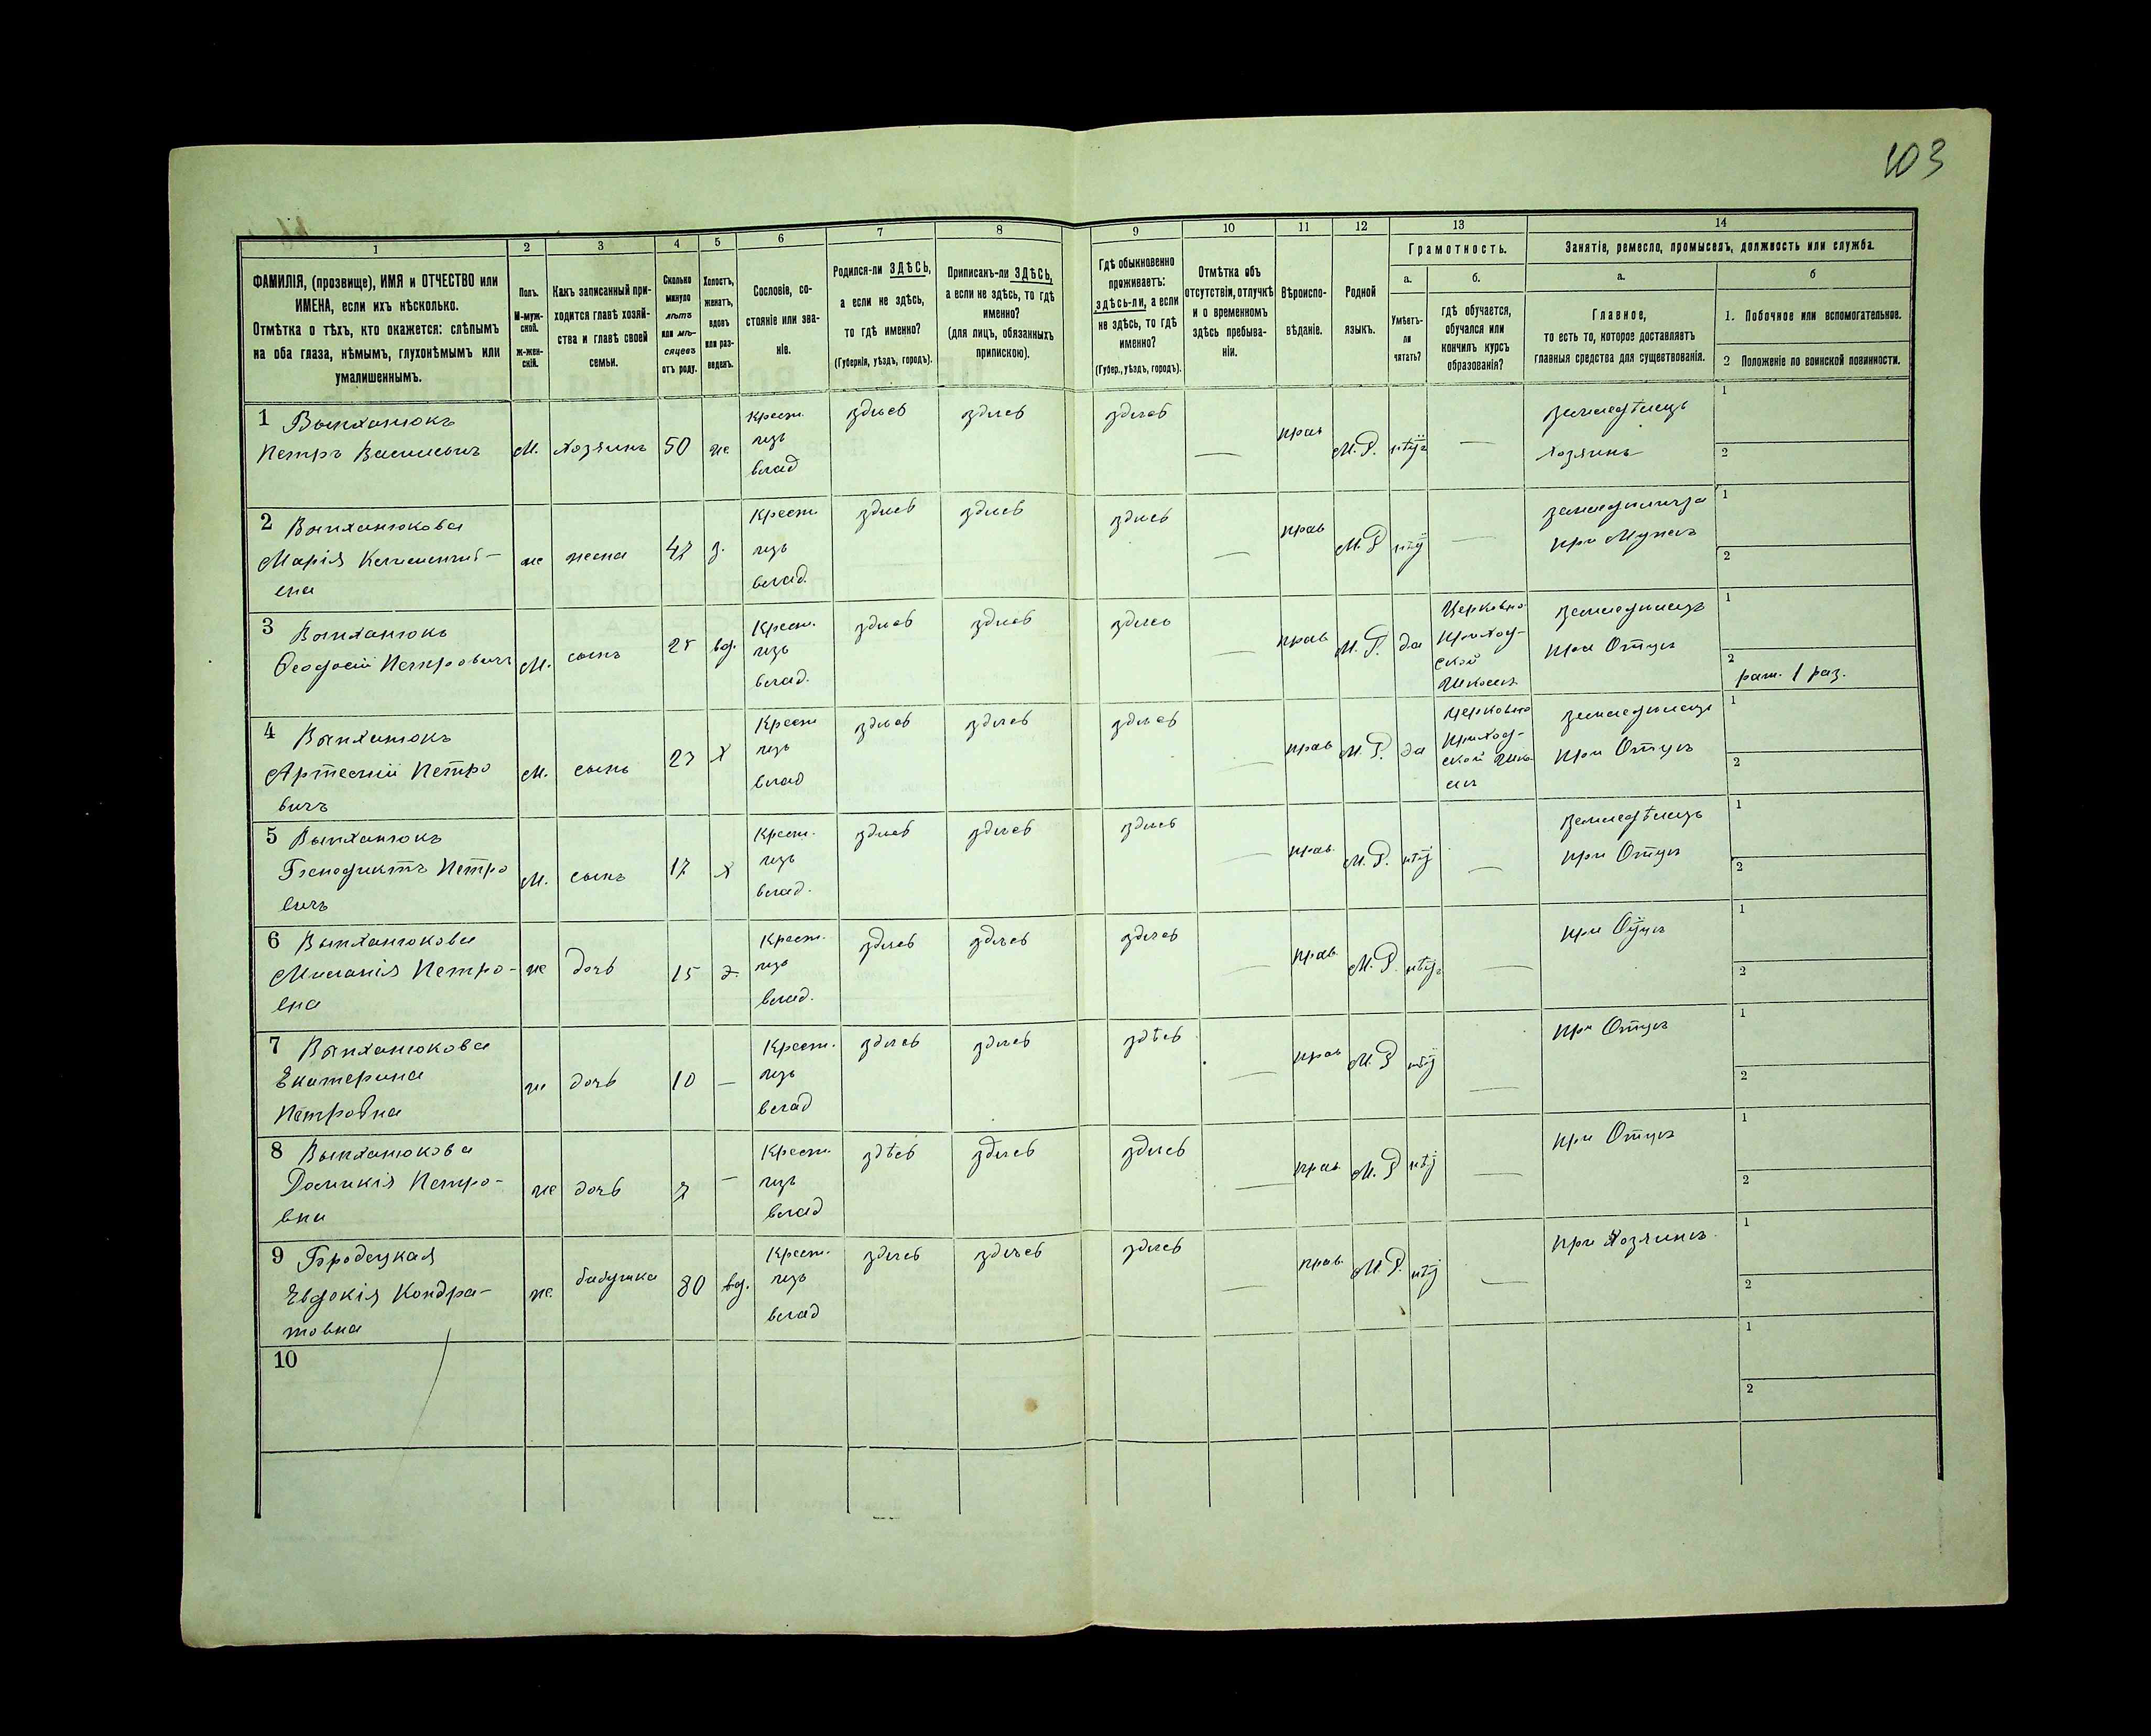 103
1
2
3
4
5
6
7
8
9
10
11
12
13
14
ФАМИЛІЯ, (прозвище), ИМЯ и ОТЧЕСТВО или
ИМЕНА, если ихъ нѣсколько.
Отмѣтка о тѣхъ, кто окажется: слѣпымъ
на оба глаза, нѣмымъ, глухонѣмымъ или
умалишеннымъ.
Полъ.
М-муж-
ской.
ж-жен-
скій.
Какъ записанный при-
ходится главѣ хозяй-
ства и главѣ своей
семьи.
Сколько
минуло
лѣтъ
или мѣ-
сяцевъ
отъ роду.
Холостъ,
женатъ,
вдовъ
или раз-
веденъ.
Сословіе, со-
стояніе или зва-
ніе.
Родился-ли ЗДѢСЬ,
а если не здѣсь,
то гдѣ именно?
(Губернія, уѣздъ, городъ).
Приписанъ-ли ЗДѢСЬ,
а если не здѣсь, то гдѣ
именно?
(для лицъ, обязанныхъ
припискою).
Гдѣ обыкновенно
проживаетъ:
здѣсь-ли, а если
не здѣсь, то гдѣ
именно?
(Губер., уѣздъ, городъ).
Отмѣтка объ
отсутствіи, отлучкѣ
и о временномъ
здѣсь пребыва-
ніи.
Вѣроиспо-
вѣданіе.
Родной
языкъ.
Грамотность.
а.
Умѣетъ-
ли
читать?
б.
гдѣ обучается,
обучался или
кончилъ курсъ
образованія?
Занятіе, ремесло, промыселъ, должность или служба.
а.
Главное,
то есть то, которое доставляетъ
главныя средства для существованія.
б
1. Побочное или вспомогательное.
2 Положеніе по воинской повинности.
1 Выпханюкъ
Петръ Васильевичъ
М. хозяинъ 50 же
Крест.
изъ
влад
здѣсь здѣсь здѣсь — прав М.Р. нѣтъ —
земледѣлецъ
хозяинъ
1
2
2 Выпханюкова
Марія
ена
же жена 47 з.
Крест.
изъ
влад.
здѣсь здѣсь здѣсь — прав М.Р нѣт —
при Мужѣ
1
2
3 Выпханюкъ
Ѳеодосій Петровичъ
М. сынъ 25 вд.
Крест.
изъ
влад.
здѣсь здѣсь здѣсь — прав М.Р. да
Церковно
приход-
ской
школѣ
земледѣлецъ
при Отцѣ
1
2
рат. 1 раз.
4 Выпханюкъ
Артемій Петро
вичъ
М. сынъ 23 х
Крест
изъ
влад
здѣсь здѣсь здѣсь — прав М.Р. да
Церковно
приход-
ской шко
лѣ
земледѣлецъ
при Отцѣ
1
2
5 Выпханюкъ
Бенедиктъ Петро
вичъ
М. сынъ 17 х
Крест.
изъ
влад.
здѣсь здѣсь здѣсь — прав. М.Р. нѣт —
земледѣлецъ
при Отцѣ
1
2
6 Выпханюкова
Меланія Петро-
вна
же дочь 15 д.
Крест.
изъ
влад.
здѣсь здѣсь здѣсь — прав. М.Р. нѣтъ —
при Отцѣ
1
2
7 Выпханюкова
Екатерина
Петровна
же дочь 10 —
Крест.
изъ
влад
здѣсь здѣсь здѣсь — прав М.Р нѣт —
при Отцѣ
1
2
8 Выпханюкова
Домникія Петро-
вна
же дочь 7 —
Крест.
изъ
влад
здѣсь здѣсь здѣсь — прав М.Р нѣт —
при Отцѣ
1
2
9 Бродецкая
Евдокія Кондра-
товна
же. бабушка 80 вд.
Крест.
изъ
влад
здѣсь здѣсь здѣсь — прав. М.Р. нѣт —
при Хозяинѣ
1
2
10
1
2